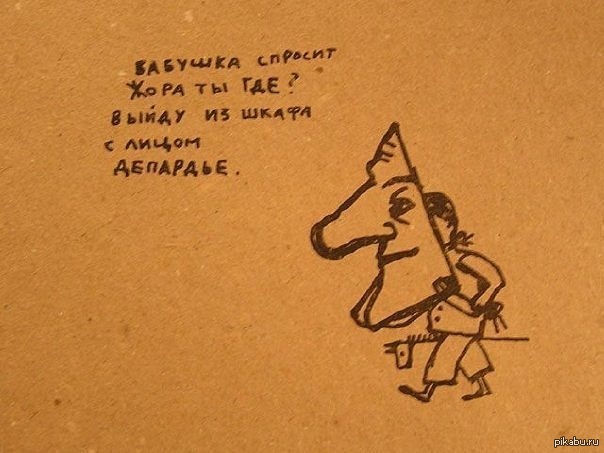 БАБУШКА СПРОСИТ
ЖОРА ТЫ ГДЕ?
ВЫЙДУ ИЗ ШКАФА
С ЛИЦОМ
ДЕПАРДЬЕ.
pikabu.ru